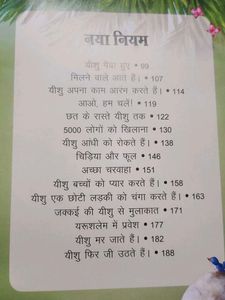 नया नियम
यीशु पैदा हुए • 99
मिलने वाले आते हैं। • 107
यीशु अपना काम आरंभ करते हैं। • 114
आओ, हम चलें! • 119
छत के रास्ते यीशु तक • 122
5000 लोगों को खिलाना • 130
यीशु आंधी को रोकते हैं। • 138
चिड़िया और फूल • 146
अच्छा चरवाहा • 151
यीशु बच्चों को प्यार करते हैं। • 158
यीशु एक छोटी लड़की को चंगा करते हैं। • 163
जक्कई की यीशु से मुलाकात • 171
यरूशलेम में प्रवेश • 177
यीशु मर जाते हैं। • 182
यीशु फिर जी उठते हैं। • 188